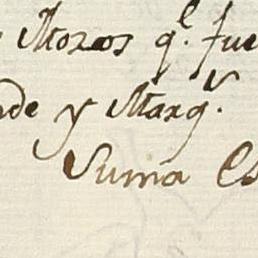 Mozos q.^l fue
de y Marq.^s
Suma